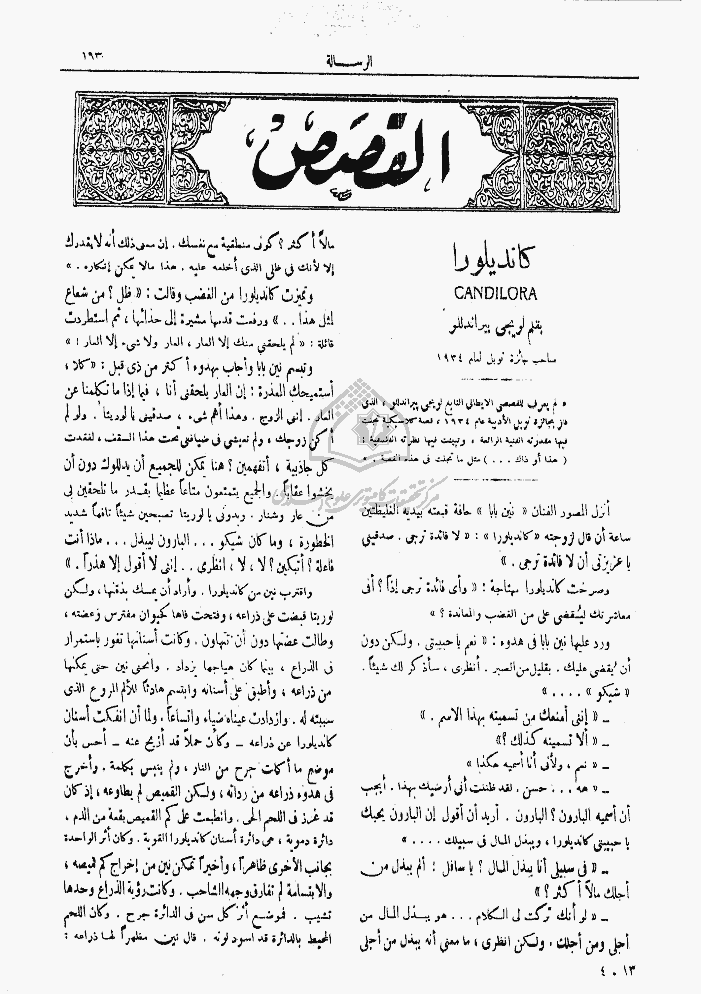 الرسالة
١٩٣٠
القصص
كانديلورا
CANDILORA
بقلم لويجي بيراندللو
صاحب جائزة نوبل لعام ١٩٣٤
« لم يعرف للقصصي الايطالي النابغ لويجي بيراندللو ، الذي
فاز بجائزة نوبل الأدبية عام ١٩٣٤ ، قصة كلاسيكية تجلت
فيها مقدرته الفنية الرائعة ، وتبينت فيها نظرته الفلسفية :
( هذا أو ذاك . . . ) مثل ما تجلت في هذه القصة . »
أنزل المصور الفنان « نين بابا » حافة قبعته بيديه الغليظتين
ساعة أن قال لزوجته «كانديلورا» : « لا فائدة ترجى . صدقيني
يا عزيزتي أن لا فائدة ترجى . »
وصرخت كانديلورا مهتاجة : « وأي فائدة ترجى إذاً ؟ أفي
معاشرتك ليقضي علي من الغضب والمعاندة ؟ »
ورد عليها نين بابا في هدوء : « نعم يا حبيبتي . ولكن دون
أن يقضي عليك . بقليل من الصبر . أنظري ، سأذكر لك شيئاً .
« شيكو » . . . . »
ــ « إنني أمنعك من تسميته بهذا الاسم . »
ــ « ألا تسمينه كذلك ؟»
ــ « نعم ، ولأني أنا أسميه هكذا »
ــ « هه . . . حسن . لقد ظننت أني أرضيك بهذا . أيجب
أن أسميه البارون ؟ البارون . أريد أن أقول إن البارون يحبك
يا حبيبتي كانديلورا ، ويبذل المال في سبيلك . . . . »
ــ « في سبيلي أنا يبذل المال ؟ يا سافل ؛ ألم يبذل من
أجلك مالاً أكثر ؟ »
ــ « لو أنك تركت لي الكلام . . . هو يبذل المال من
أجلي ومن أجلك . ولكن انظري ، ما معنى أنه يبذل من أجلي
١٣ ٠ ٤
مالاً أكثر ؟ كوني منطقية مع نفسك . إن معنى ذلك أنه لا يقدرك
إلا لأنك في ظلي الذي أخلعه عليه . هذا مالا يمكن إنكاره . »
وتميزت كانديلورا من الغضب وقالت : « ظل ؟ من شعاع
لمثل هذا . . » ورفعت قدمها مشيرة إلى حذائها ، ثم استطردت
قائلة : « لم يلحقني منك إلا العار ، العار ولا شيء إلا العار ! »
وتبسم نين بابا وأجاب بهدوء أكثر من ذي قبل : «كلا ،
أستميحك المعذرة : إن العار يلحقني أنا ، فيما إذا ما تكلمنا عن
العار . إنني الزوج . وهذا أهم شيء ، صدقيني يا لوريتا . ولو لم
أكن زوجك ، ولم تعيشي في ضيافتي تحت هذا السقف ، لفقدت
كل جاذبية ، أتفهمين ؟ هنا يمكن للجميع أن يدللوك دون أن
يخشوا عقاباً . والجميع يتمتعون متاعاً عظيما بقدر ما تلحقين بي
من عار وشنار . وبدوني يا لوريتا تصبحين شيئاً تافهاً شديد
الخطورة ، وما كان شيكو . . . البارون ليبذل . . . ماذا أنت
فاعلة ؟ أتبكين ؟ لا ، لا ، انظري . . إنني لا أقول إلا هذراً . »
واقترب نين من كانديلورا . وأراد أن يمسك بذقنها ، ولكن
لوريتا قبضت على ذراعه ، وفتحت فاها كحيوان مفترس وعضته ،
وطالت عضتها دون أن تتهاون . وكانت أسنانها تفور باستمرار
في الذراع ، بينما كان هياجها يزداد . وانحنى نين حتى يمكنها
من ذراعه ، وأطبق على أسنانه وابتسم هادئاً للألم المروع الذي
سببته له . وازدادت عيناه ضياء واتساعاً . ولما أن انفكت أسنان
كانديلورا عن ذراعه ــ وكأن حملاً قد أزيح عنه ــ أحس بأن
موضع ما أكلت جرح من النار ، ولم ينبس بكلمة . وأخرج
في هدوء ذراعه من ردائه ، ولكن القميص لم يطاوعه ، إذ كان
قد غرز في اللحم الحي . وانطبعت على كم القميص بقعة من الدم ،
دائرة دموية ، هي دائرة أسنان كانديلورا القوية . وكان أثر الواحدة
بجانب الأخرى ظاهراً ، وأخيراً تمكن نين من إخراج كم قميصه ،
والابتسامة لم تفارق وجهه الشاحب . وكانت رؤية الذراع وحدها
تشيب . فموضع أثر كل سن في الدائرة جرح . وكان اللحم
المحيط بالدائرة قد اسود لونه . قال نين مظهراً لها ذراعه :